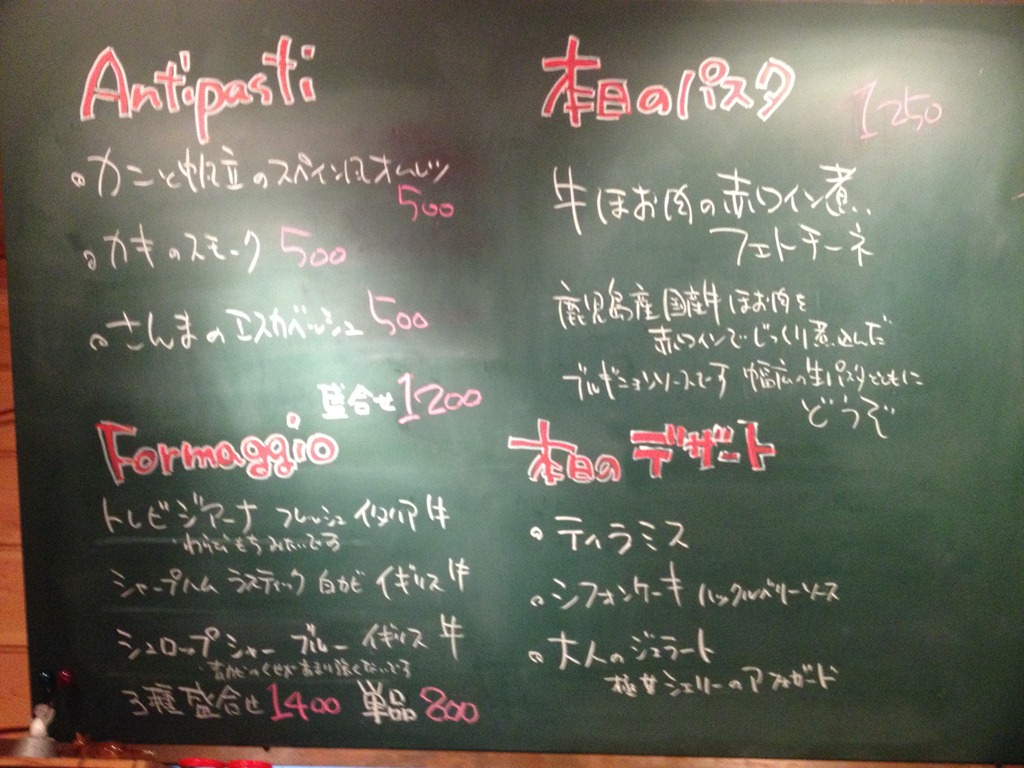 Antipasti
カニと帆立のスペイン風オムレツ
500
カキのスモーク 500
さんまのエスカベッシュ 500
盛合せ 1200
Formaggio
トレビジアーナ フレッシュ イタリア 牛
・わらびもちみたいです
シャープハム ラスティック 白カビ イギリス 牛
シュロップシャー ブルー イギリス 牛
・青カビのくせがあまり強くないです
3種盛合せ 1400 単品 800
本日のパスタ 1250
牛ほお肉の赤ワイン煮
フェトチーネ
鹿児島産国産牛ほお肉を
赤ワインでじっくり煮込んだ
ブルギニョンソースです 幅広の生パスタとともに
どうぞ
本日のデザート
ティラミス
シフォンケーキ ハックルベリーソース
大人のジェラート
極甘シェリーのアフォガード